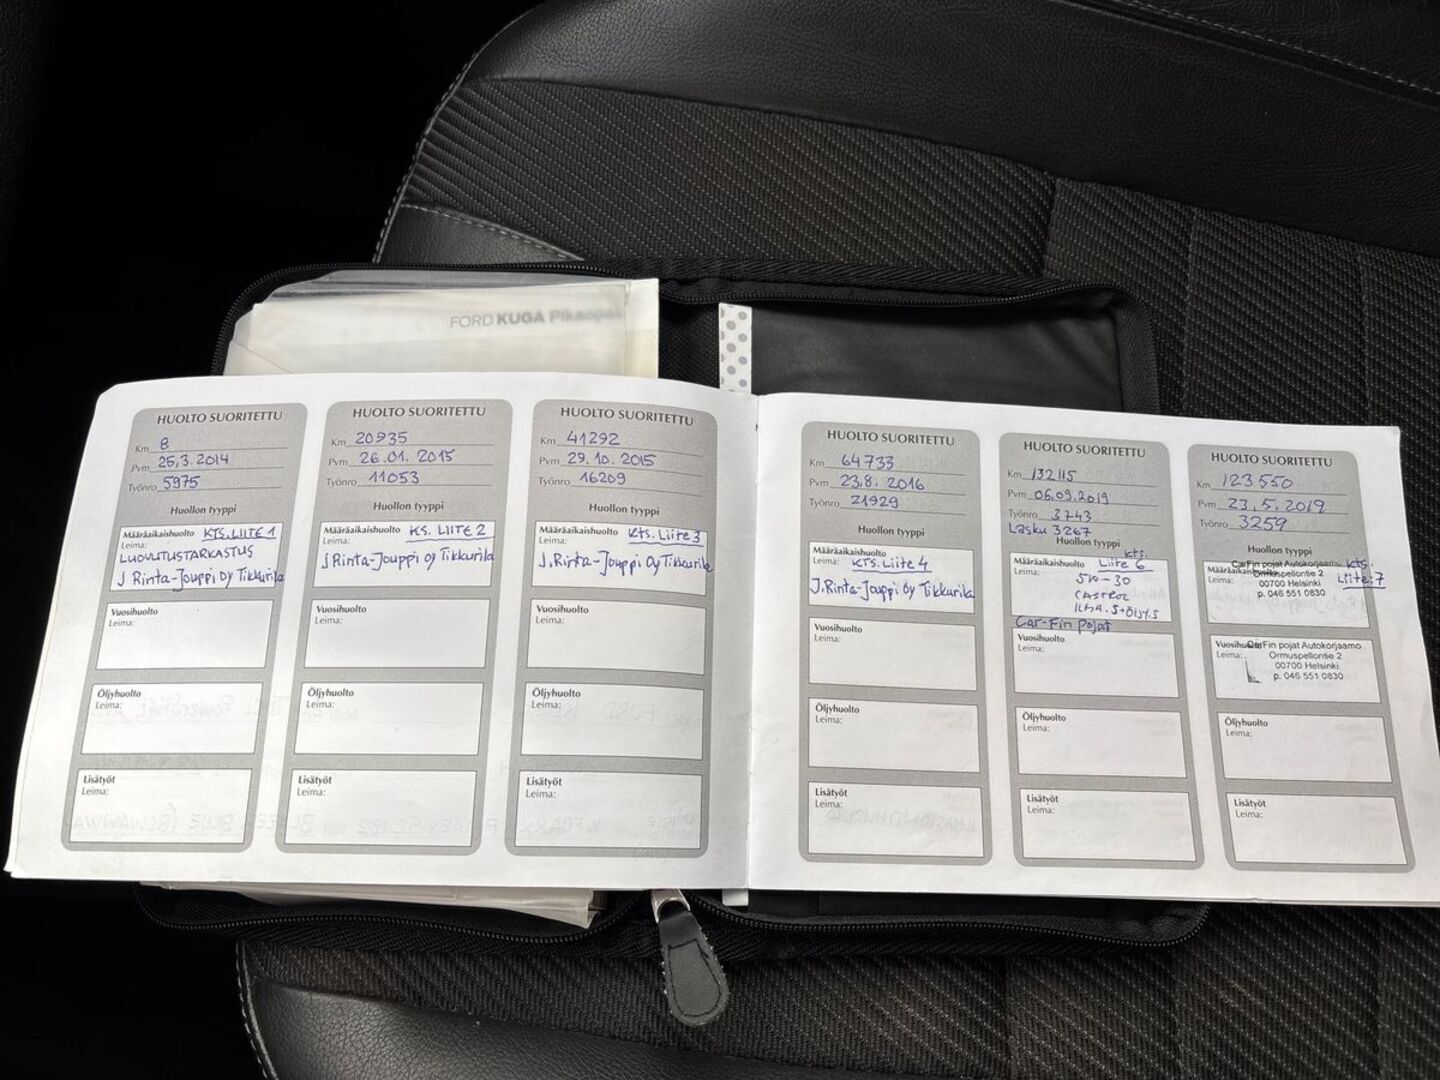 FORD KUGA Pikaopas
HUOLTO SUORITETTU
Km 8
Pvm 25.3.2014
Työnro 5975
Huollon tyyppi
Määräaikaishuolto KTS. LIITE 1
Leima:
LUOVUTUSTARKASTUS
J Rinta-Jouppi Oy Tikkurila
Vuosihuolto
Leima:
Öljyhuolto
Leima:
Lisätyöt
Leima:
HUOLTO SUORITETTU
Km 20935
Pvm 26.01.2015
Työnro 11053
Huollon tyyppi
Määräaikaishuolto KS. LIITE 2
Leima:
J Rinta-Jouppi oy Tikkurila
Vuosihuolto
Leima:
Öljyhuolto
Leima:
Lisätyöt
Leima:
HUOLTO SUORITETTU
Km 41292
Pvm 29.10.2015
Työnro 16209
Huollon tyyppi
Määräaikaishuolto kts. Liite 3
Leima:
J. Rinta-Jouppi Oy Tikkurila
Vuosihuolto
Leima:
Öljyhuolto
Leima:
Lisätyöt
Leima:
HUOLTO SUORITETTU
Km 64733
Pvm 23.8.2016
Työnro 21929
Huollon tyyppi
Määräaikaishuolto
Leima: KTS. Liite 4
J. Rinta-Jouppi Oy Tikkurila
Vuosihuolto
Leima:
Öljyhuolto
Leima:
Lisätyöt
Leima:
HUOLTO SUORITETTU
Km 132115
Pvm 06.09.2019
Työnro 3743
Lasku 3267
Huollon tyyppi
kts.
Määräaikaishuolto Liite 6
Leima: 5W-30
CASTROL
ILMA.S+ÖLJY.S
Car-Fin pojat
Vuosihuolto
Leima:
Öljyhuolto
Leima:
Lisätyöt
Leima:
HUOLTO SUORITETTU
Km 123550
Pvm 23.5.2019
Työnro 3259
Huollon tyyppi
CarFin pojat Autokorjaamo kts.
Määräaikaishuolto Ormuspellontie 2 Liite:7
Leima: 00700 Helsinki
p. 046 551 0830
Vuosihuolto CarFin pojat Autokorjaamo
Leima: Ormuspellontie 2
00700 Helsinki
p. 046 551 0830
Öljyhuolto
Leima:
Lisätyöt
Leima: